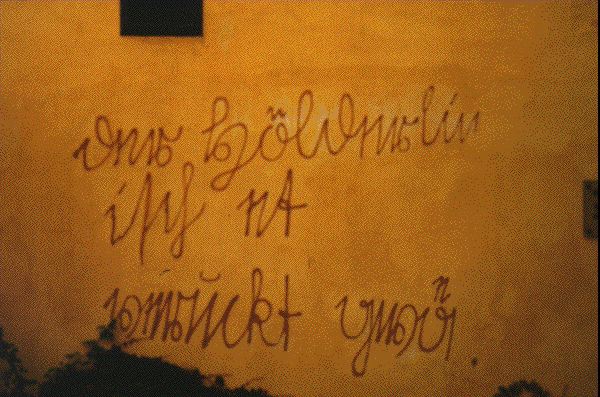 der Hölderlin
isch et
verruckt gwä